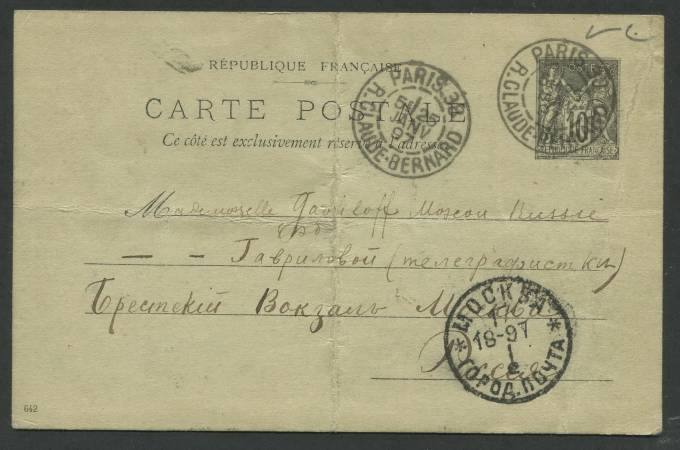 RÉPUBLIQUE FRANÇAISE
CARTE POSTALE
Ce côté est exclusivement réservé à l'adresse
PARIS-30
JANV
97
R. CLAUDE-BERNARD
PARIS
R. CLAUDE-
POSTES
10
RÉPUBLIQUE FRANÇAISE
Mademoiselle Gavriloff Moscou Russie
— — Гавриловой (телеграфистки)
Брестскій Вокзалъ Москва
МОСКВА
18-97
I
ГОРОД. ПОЧТА
642